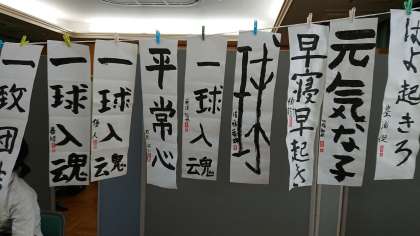 一致団
一球入魂
一球入魂
平常心
一球入魂
球
早寝早起き
元気な子
はよ起きろ